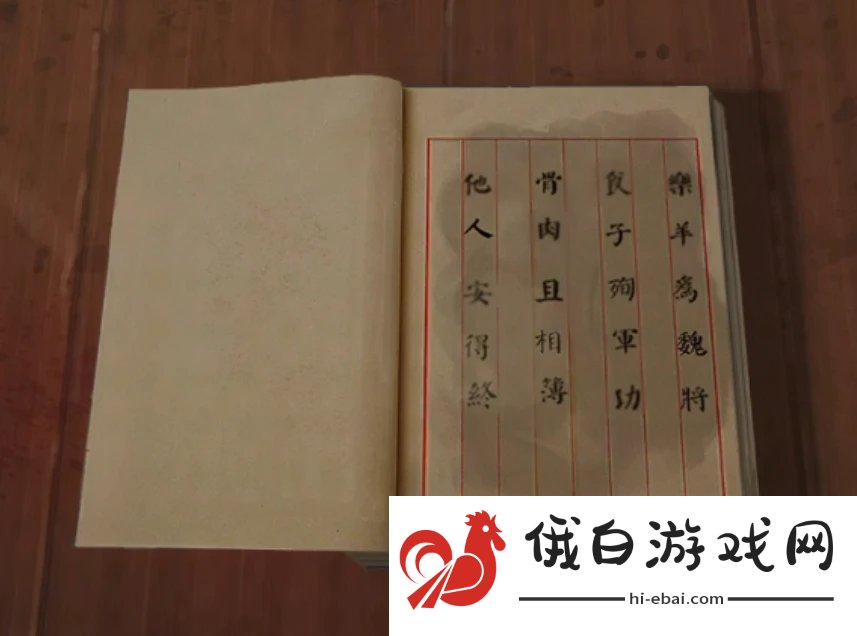 樂羊爲魏將
食子殉軍功
骨肉且相薄
他人安得終
俄白游戏网
hi-ebai.com